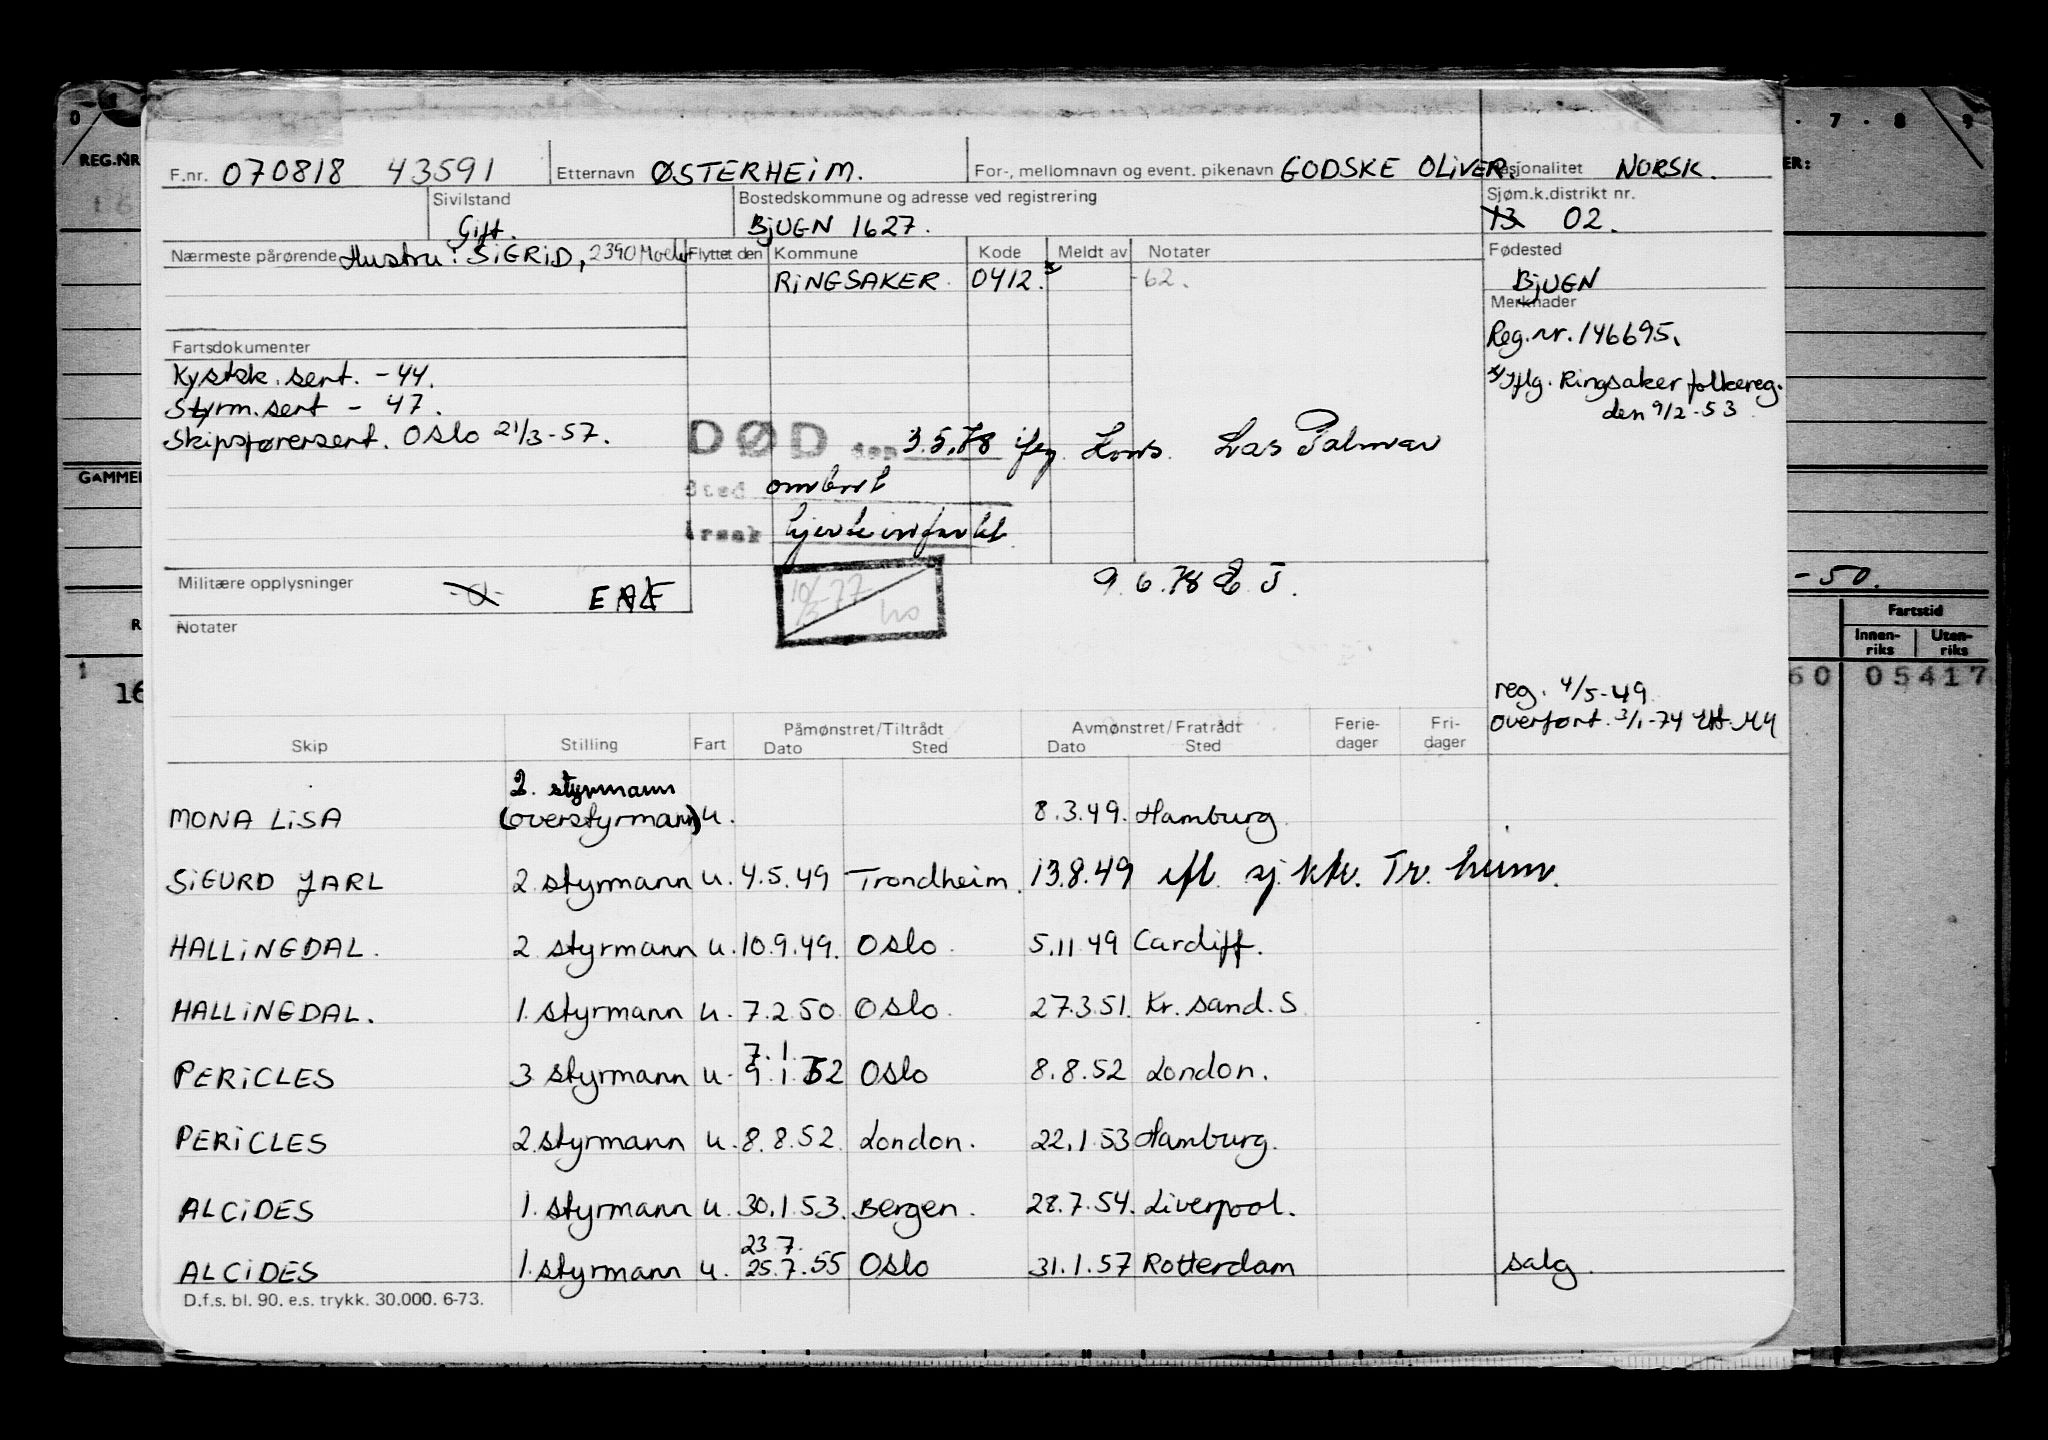 0 - 7 - 8 9
REG.NR
F.nr. 070818 43591 Etternavn ØSTERHEIM. For-, mellomnavn og event. pikenavn GODSKE OLIVER. Nasjonalitet NORSK.
Sivilstand Bostedskommune og adresse ved registrering Sjøm.k.distrikt nr.
Gift. BJUGN 1627. 13 02.
Nærmeste pårørende Hustru: SIGRID, 2390 Moelv Flyttet den Kommune Kode Meldt av Notater Fødested
RINGSAKER 0412. x -62. BJUGN
Merknader
Reg.nr. 146695.
Fartsdokumenter
Kystsk. sert. - 44. x/ Iflg. Ringsaker folkereg.
Styrm. sert - 47. den 9/2-53
Skipsførersert. Oslo 21/3-57. DØD den 3.5.78 ifø Kons. Las Palmas
GAMMEL Sted ombord
Årsak hjerteinfarkt
Militære opplysninger -0- 10/5-77 9.6.78 -50.
Notater
Fartstid
Innen-riks Uten-riks
1 16 60 05417
reg. 4/5-49
overført. 3/1-74
Skip Stilling Fart Påmønstret/Tiltrådt Avmønstret/Fratrådt Ferie-dager Fri-dager
Dato Sted Dato Sted
2. styrmann
MONA LISA (overstyrmann) u. 8.3.49. Hamburg
SIGURD JARL 2 styrmann u. 4.5.49 Trondheim. 13.8.49 ifl. sj.ktr. Tr.heim.
HALLINGDAL. 2 styrmann u. 10.9.49. Oslo. 5.11.49 Cardiff.
HALLINGDAL. 1. styrmann u. 7.2.50 Oslo. 27.3.51. Kr.sand.S
7.1.
PERICLES 3 styrmann u. 9.1.52 Oslo 8.8.52 London.
PERICLES 2. styrmann u. 8.8.52. London. 22.1.53 Hamburg.
ALCIDES 1. styrmann u. 30.1.53. Bergen. 28.7.54. Liverpool.
23.7.
ALCIDES 1. styrmann u. 25.7.55 Oslo 31.1.57 Rotterdam salg.
D.f.s. bl. 90. e.s. trykk. 30.000. 6-73.